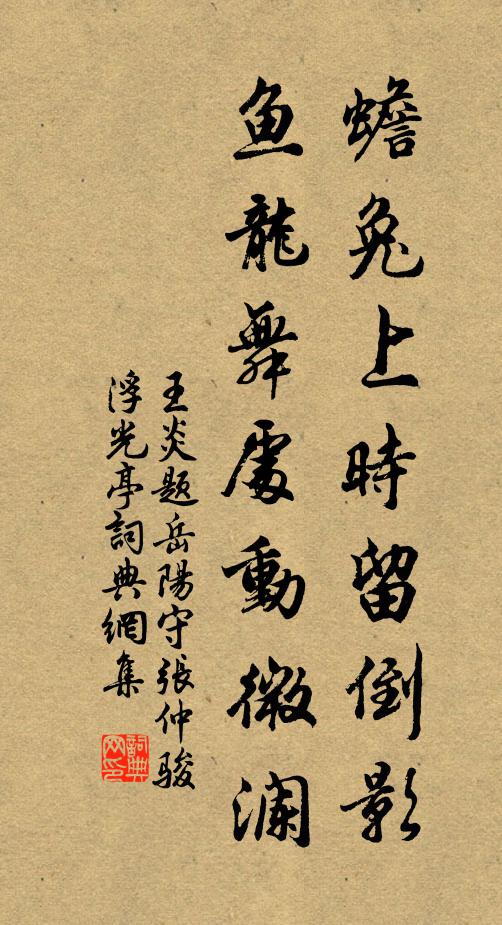 蟾兔上時留倒影
鱼龍舞處動微澜
王炎题岳陽守張仲駿
浮光亭詞典網集
詞典网印